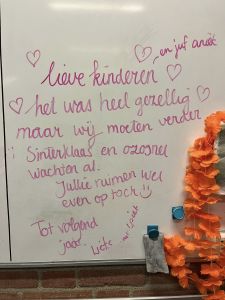 en juf anoek
lieve kinderen
het was heel gezellig
maar wij moeten verder
Sinterklaas en ozosnel
wachten al.
Jullie ruimen wel
even op toch
Tot volgend
jaar. Liefs